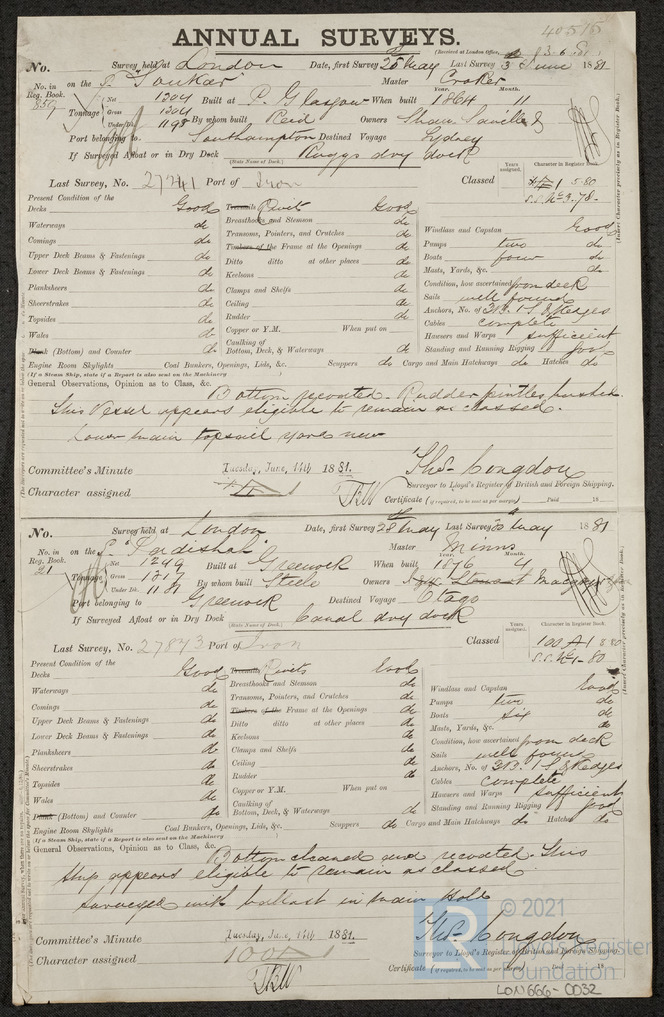 40515
ANNUAL SURVEYS.
(Received at London Office,
No. Survey held at London Date, first Survey 28 May Last Survey 3 June 1881
No. in Reg. Book. on the S. Soukar Master Crocker
859 Tonnage Net 1304 Gross 1304 Under Dk. 1193 Built at P. Glasgow When built Year. 1864 Month. 11
By whom built Reid Owners Shaw, Savill &
Port belonging to Southampton Destined Voyage Sydney
If Surveyed Afloat or in Dry Dock Ruggs dry dock
(State Name of Dock.)
Last Survey, No. 27241 Port of Iron Classed
Years assigned. Character in Register Book.
(Insert Character precisely as in Register Book.)
Present Condition of the
Decks Good
Waterways do
Comings do
Upper Deck Beams & Fastenings do
Lower Deck Beams & Fastenings do
Planksheers do
Sheerstrakes do
Topsides do
Wales do
Plank (Bottom) and Counter do
Treenails Rivets Good
Breasthooks and Stemson do
Transoms, Pointers, and Crutches do
Timbers of the Frame at the Openings do
Ditto ditto at other places do
Keelsons do
Clamps and Shelfs do
Ceiling do
Rudder do
Copper or Y.M. When put on
Caulking of
Bottom, Deck, & Waterways do
Windlass and Capstan Good
Pumps two do
Boats four do
Masts, Yards, &c. do
Condition, how ascertained from deck
Sails well found
Anchors, No. of 3B. 1S. & Kedges
Cables complete
Hawsers and Warps sufficient
Standing and Running Rigging good
Engine Room Skylights Coal Bunkers, Openings, Lids, &c. Scuppers do Cargo and Main Hatchways do Hatches do
(If a Steam Ship, state if a Report is also sent on the Machinery )
General Observations, Opinion as to Class, &c.
Bottom recoated. Rudder pintles bushed.
This Vessel appears eligible to remain as classed.
Lower main topsail yard new
Committee's Minute Tuesday, June, 14th 1881. Thos. Congdon
Surveyor to Lloyd's Register of British and Foreign Shipping.
Character assigned
Certificate (if required, to be sent as per margin) Paid 18
No. Survey held at London Date, first Survey 28 May Last Survey 30 May 1881
No. in Reg. Book. on the S. Master Minns
21 Tonnage Net 1299 Gross 1317 Under Dk. Built at Greenock When built Year. 1876 Month. 4
By whom built Steele Owners
Port belonging to Greenock Destined Voyage Otago
If Surveyed Afloat or in Dry Dock Canal dry dock
(State Name of Dock.)
Last Survey, No. 27843 Port of Iron Classed 100 A1 8.80
Years assigned. Character in Register Book.
S.S. No 1-80
(Insert Character precisely as in Register Book.)
Present Condition of the
Decks Good
Waterways do
Comings do
Upper Deck Beams & Fastenings do
Lower Deck Beams & Fastenings do
Planksheers do
Sheerstrakes do
Topsides do
Wales do
Plank (Bottom) and Counter do
Treenails Rivets Good
Breasthooks and Stemson do
Transoms, Pointers, and Crutches do
Timbers of the Frame at the Openings do
Ditto ditto at other places do
Keelsons do
Clamps and Shelfs do
Ceiling do
Rudder do
Copper or Y.M. When put on
Caulking of
Bottom, Deck, & Waterways do
Windlass and Capstan Good
Pumps two do
Boats six do
Masts, Yards, &c. do
Condition, how ascertained from deck
Sails well found
Anchors, No. of 3B. 1S. & Kedges
Cables complete
Hawsers and Warps sufficient
Standing and Running Rigging good
Engine Room Skylights Coal Bunkers, Openings, Lids, &c. Scuppers do Cargo and Main Hatchways do Hatches do
(If a Steam Ship, state if a Report is also sent on the Machinery )
General Observations, Opinion as to Class, &c.
Bottom cleaned and recoated. This
ship appears eligible to remain as classed.
Surveyed with ballast in main Hold
Committee's Minute Tuesday, June, 14th 1881. Thos. Congdon
Surveyor to Lloyd's Register of British and Foreign Shipping.
Character assigned 100A1
Certificate (if required, to be sent as per margin) 18
LR © 2021 Lloyd's Register Foundation
LON666-0032